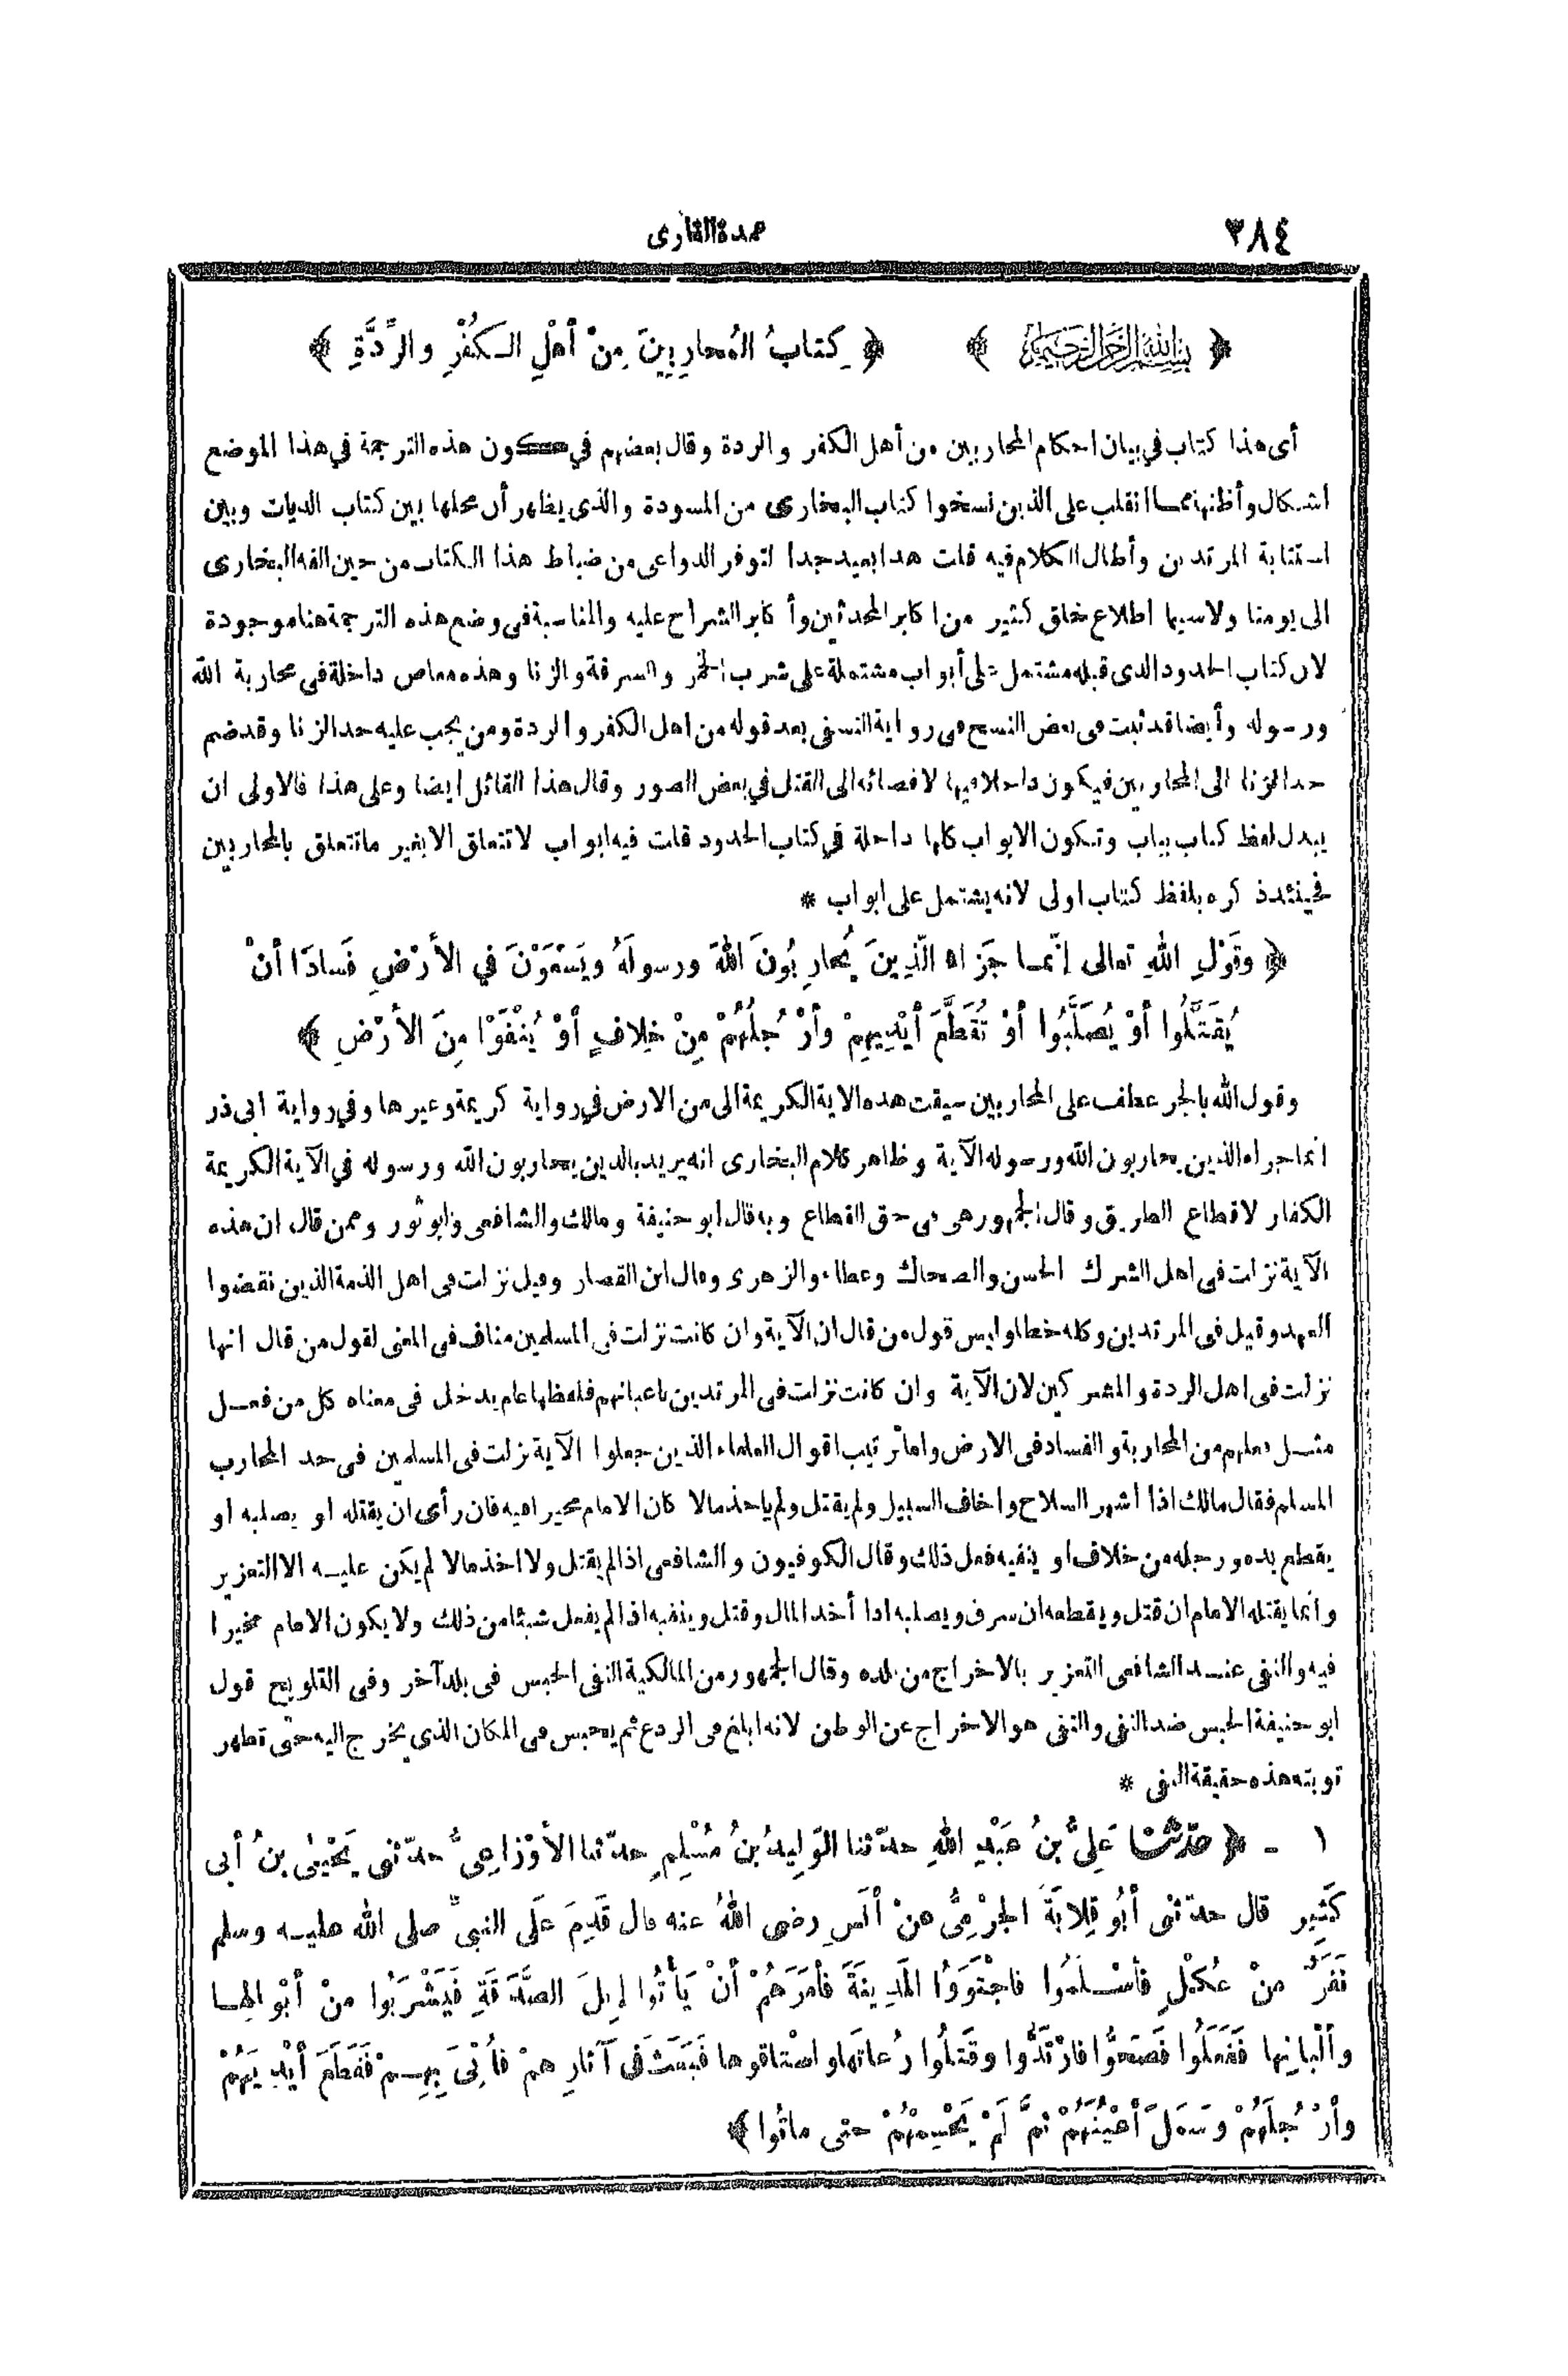 ٣٨٤ عمدة القارى
﴿ بسم الله الرحمن الرحيم ﴾ ﴿ كِتابُ المُحارِبِينَ مِنْ أهْلِ الكُفْرِ والرِّدَّةِ ﴾
أى هذا كتاب في بيان احكام المحاربين من أهل الكفر والردة وقال بعضهم في كون هذه الترجمة في هذا الموضع
اشكال وأظنها مما انقلب على الذين نسخوا كتاب البخارى من المسودة والذى يظهر أن محلها بين كتاب الديات وبين
استتابة المرتدين وأطال الكلام فيه قلت هذا بعيد جدا لتوفر الدواعى من ضباط هذا الكتاب من حين الفه البخارى
الى يومنا ولا سيما اطلاع خلق كثير من اكابر المحدثين وأكابر الشراح عليه والمناسبة فى وضع هذه الترجمة هنا موجودة
لان كتاب الحدود الذى قبله مشتمل على أبواب مشتملة على شرب الخمر والسرقة والزنا وهذه معاص داخلة في محاربة الله
ورسوله وأيضا قد ثبت فى بعض النسخ فى رواية النسفى بعد قوله من اهل الكفر والردة ومن يجب عليه حد الزنا وقد ضم
حد الزنا الى المحاربين فيكون داخلا فيها لافضائه الى القتل في بعض الصور وقال هذا القائل ايضا وعلى هذا فالاولى ان
يبدل لفظ كتاب بباب وتكون الابواب كلها داخلة في كتاب الحدود قلت فيه ابواب لا تتعلق الا بغير ما تتعلق بالمحاربين
فحينئذ ذكره بلفظ كتاب اولى لانه يشتمل على ابواب *
﴿ وقَوْلِ اللهِ تعالى إنَّما جَزَاهُ الَّذِينَ يُحارِبُونَ اللهَ ورسولَهُ ويَسْعَوْنَ في الأرْضِ فَسادًا أنْ
يُقَتَّلُوا أوْ يُصَلَّبُوا أوْ تُقَطَّعَ أيْدِيهِمْ وأرْجُلُهُمْ مِنْ خِلافٍ أوْ يُنْفَوْا مِنَ الأرْضِ ﴾
وقول الله بالجر عطف على المحاربين سيقت هذه الاية الكريمة الى من الارض في رواية كريمة وغيرها وفي رواية ابى ذر
انما جزاء الذين يحاربون الله ورسوله الآية وظاهر كلام البخارى انه يريد بالذين يحاربون الله ورسوله في الآية الكريمة
الكفار لا قطاع الطريق وقال الجمهور هى فى حق القطاع وبه قال ابو حنيفة ومالك والشافعى وابو ثور وممن قال ان هذه
الآية نزلت فى اهل الشرك الحسن والضحاك وعطاء والزهرى وقال ابن القصار وقيل نزلت فى اهل الذمة الذين نقضوا
العهد وقيل فى المرتدين وكله خطا وليس قول من قال ان الآية وان كانت نزلت فى المسلمين مناف فى المعنى لقول من قال انها
نزلت فى اهل الردة والمشركين لان الآية وان كانت نزلت فى المرتدين باعيانهم فلفظها عام يدخل فى معناه كل من فعل
مثل فعلهم من المحاربة والفساد فى الارض واما ترتيب اقوال العلماء الذين جعلوا الآية نزلت فى المسلمين فى حد المحارب
المسلم فقال مالك اذا اشهر السلاح واخاف السبيل ولم يقتل ولم ياخذ مالا كان الامام مخيرا فيه فان رأى ان يقتله او يصلبه او
يقطع يده ورجله من خلاف او ينفيه فعل ذلك وقال الكوفيون والشافعى اذا لم يقتل ولا اخذ مالا لم يكن عليه الا التعزير
وانما يقتله الامام ان قتل ويقطعه ان سرق ويصلبه اذا أخذ المال وقتل وينفيه اذا لم يفعل شيئا من ذلك ولا يكون الامام مخيرا
فيه والنفى عند الشافعى التعزير بالاخراج من بلده وقال الجمهور من المالكية النفى الحبس فى بلد آخر وفى التلويح قول
ابو حنيفة الحبس ضد النفى والنفى هو الاخراج عن الوطن لانه ابلغ فى الردع ثم يحبس فى المكان الذى يخرج اليه حتى تظهر
توبته هذه حقيقة النفى *
١ ـ ﴿ حدّثنا عَلِىُّ بنُ عَبْدِ اللهِ حدّثنا الوَلِيدُ بنُ مُسْلِمٍ حدّثنا الأوْزاعِىُّ حدّثنى يَحْيىٰ بنُ أبى
كَثِيرٍ قال حدّثنى أبُو قِلابَةَ الجَرْمِىُّ عنْ أنَسٍ رضى اللهُ عنه قال قَدِمَ عَلَى النبىِّ صلى الله عليه وسلم
نَفَرٌ مِنْ عُكْلٍ فأسْلَمُوا فاجْتَوَوُا المَدِينَةَ فأمَرَهُمْ أنْ يَأْتُوا إبِلَ الصَّدَقَةِ فَيَشْرَبُوا مِنْ أبْوالِها
وألْبانِها فَفَعَلُوا فَصَحُّوا فارْتَدُّوا وقَتَلُوا رُعاتَها واسْتاقوها فَبَعَثَ فى آثارِهِمْ فأُتِىَ بِهِمْ فَقَطَعَ أيْدِيَهُمْ
وأرْجُلَهُمْ وسَمَلَ أعْيُنَهُمْ ثمَّ لَمْ يَحْسِمْهُمْ حتى ماتُوا ﴾